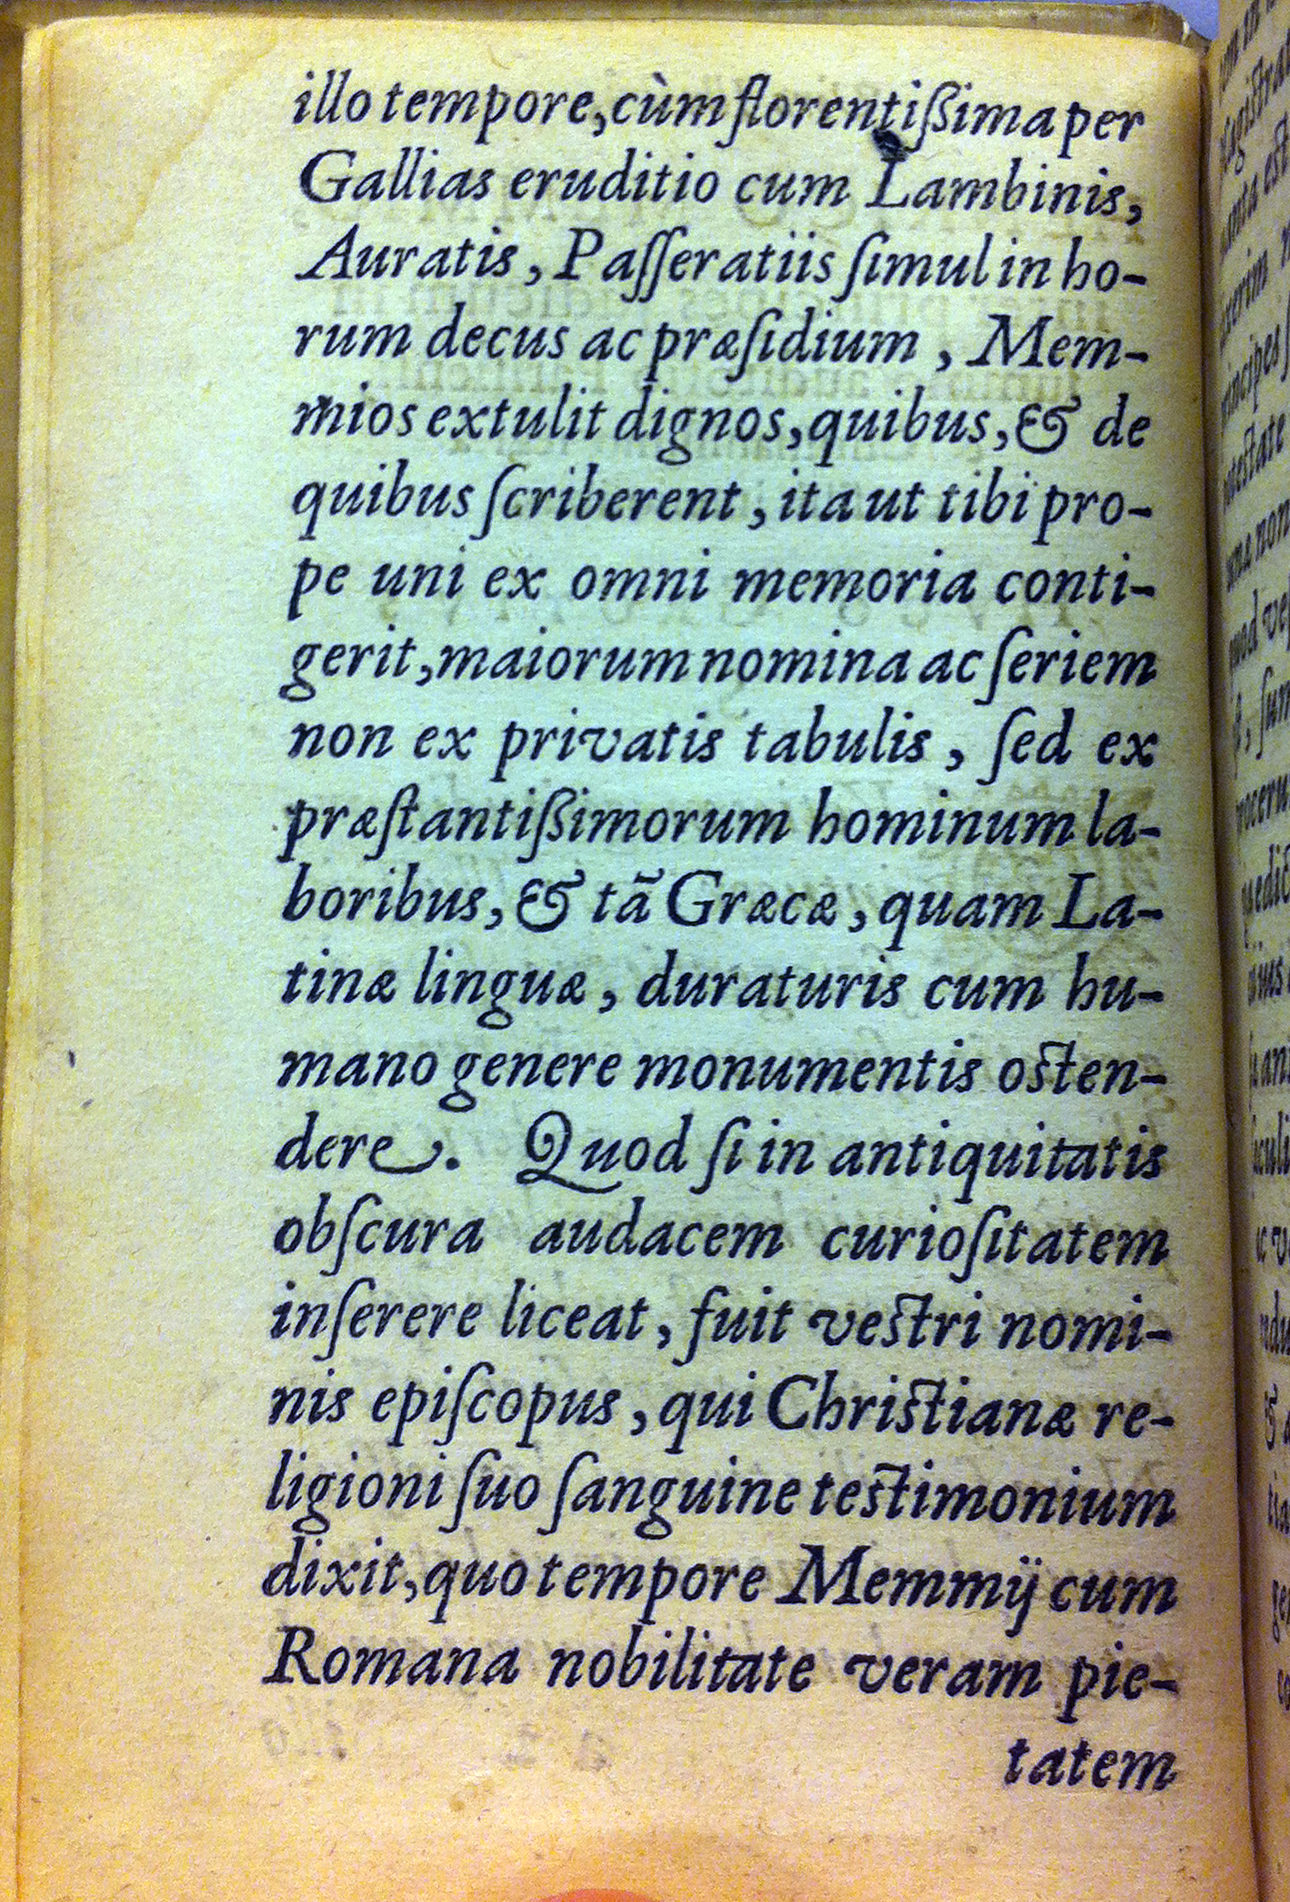 illo tempore, cùm florentißima per
Gallias eruditio cum Lambinis,
Auratis, Paſſeratiis ſimul in ho-
rum decus ac præſidium, Mem-
mios extulit dignos, quibus, & de
quibus ſcriberent, ita ut tibi pro-
pe uni ex omni memoria conti-
gerit, maiorum nomina ac ſeriem
non ex privatis tabulis, ſed ex
præſtantißimorum hominum la-
boribus, & tã Græcæ, quam La-
tinæ linguæ, duraturis cum hu-
mano genere monumentis oſten-
dere. Quod ſi in antiquitatis
obſcura audacem curioſitatem
inſerere liceat, fuit veſtri nomi-
nis epiſcopus, qui Chriſtianæ re-
ligioni ſuo ſanguine teſtimonium
dixit, quo tempore Memmij cum
Romana nobilitate veram pie-
tatem